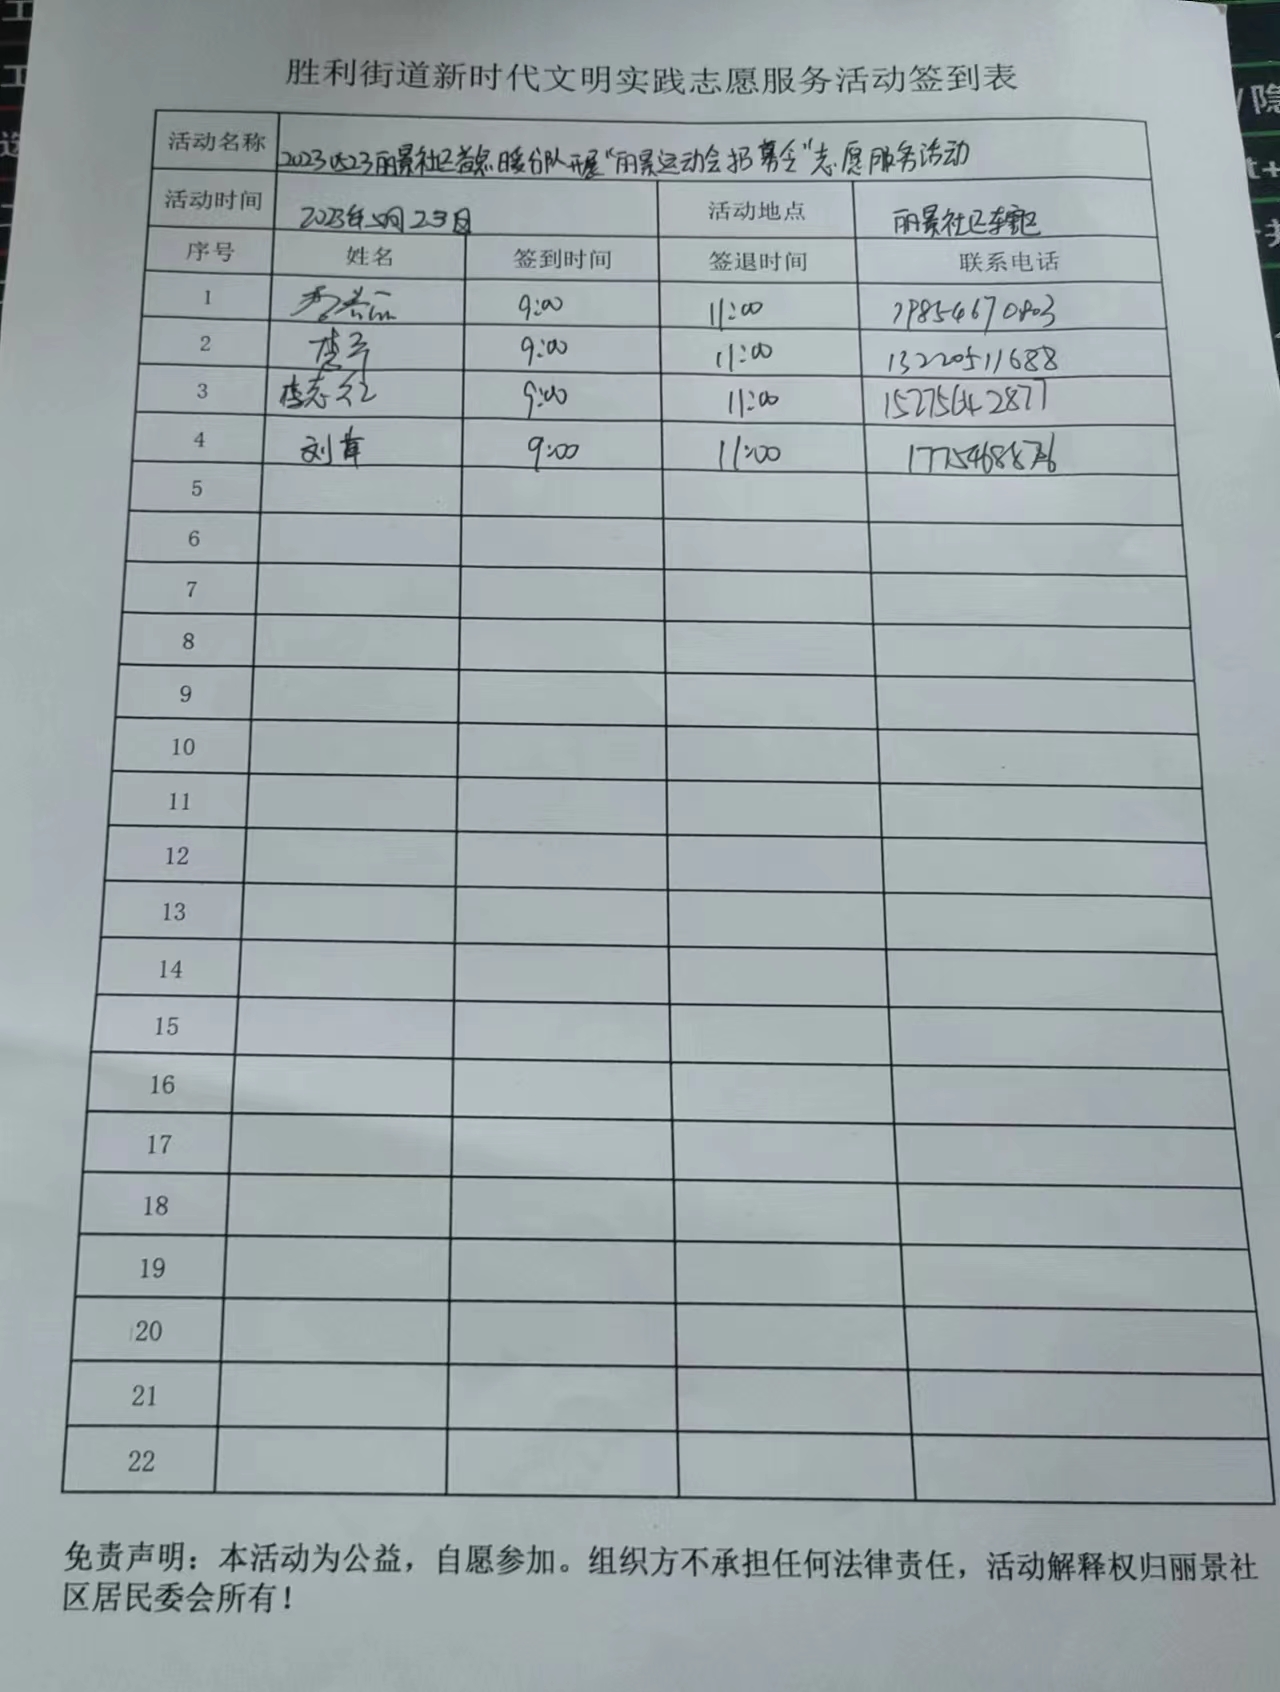 胜利街道新时代文明实践志愿服务活动签到表
活动名称 20230523丽景社区益点暖分队开展“丽景运动会招募令”志愿服务活动
活动时间 2023年5月23日 活动地点 丽景社区辖区
序号 姓名 签到时间 签退时间 联系电话
1 9:00 11:00
2 9:00 11:00 13220511688
3 李志红 9:00 11:00 15275642877
4 刘 9:00 11:00
5
6
7
8
9
10
11
12
13
14
15
16
17
18
19
20
21
22
免责声明：本活动为公益，自愿参加。组织方不承担任何法律责任，活动解释权归丽景社
区居民委会所有！